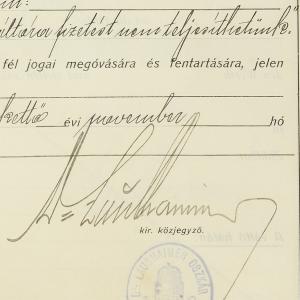 fizetést nem teljesíthetünk."
fél jogai megóvására és fentartására, jelen
kettő évi november hó
Dr
kir. közjegyző.
OSZKÁR